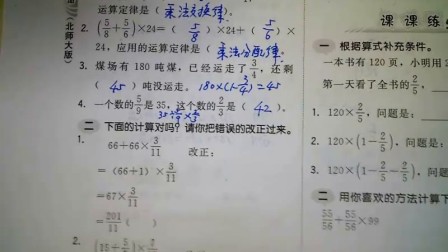 (北师大版)
运算定律是(乘法交换律)
2. (5/8+5/6)×24=(5/8)×24+(5/6)×
24,应用的运算定律是(乘法分配律)
3. 煤场有180吨煤,已经运走了3/4,还剩
(45)吨没运走。 180×(1-3/4)=45
4. 一个数的5/9是35,这个数的2/3是(42)。
35÷5/9×2/3
二 下面的计算对吗?请你把错误的改正过来。
1. 66+66×3/11 改正:
=(66+1)×3/11
=67×3/11
=201/11( )
2. (15+5/6)×
课课练
一 根据算式补充条件。
一本书有120页,小明用2
第一天看了全书的2/5,
1. 120×2/5,问题是:
2. 120×(1-2/5),问题是:
3. 120×(1-2/5-2/5),问题是:
二 用你喜欢的方法计算下
55/56+55/56×99